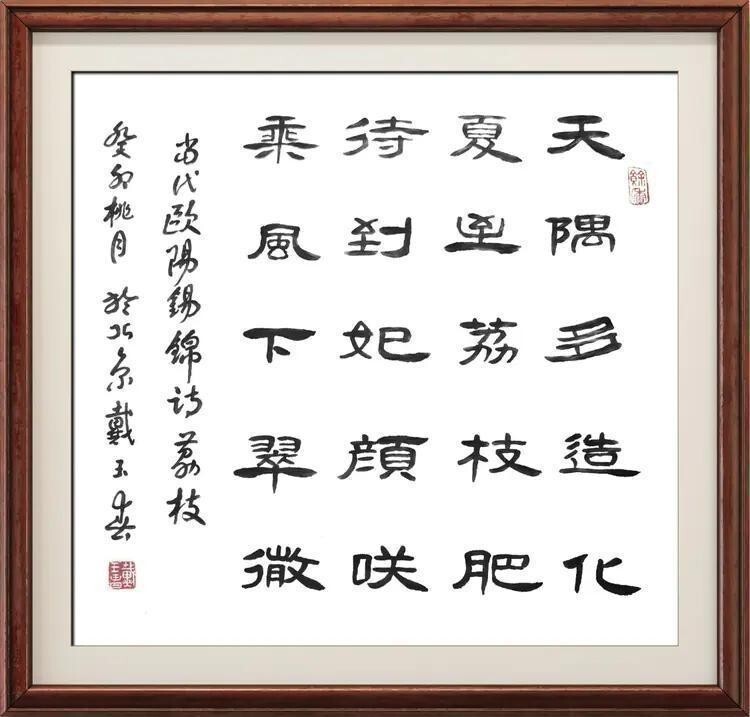 天隅多造化
夏至荔枝肥
待到妃顏咲
乘風下翠微
当代歐陽錫錦诗荔枝
癸卯桃月於北京戴玉春